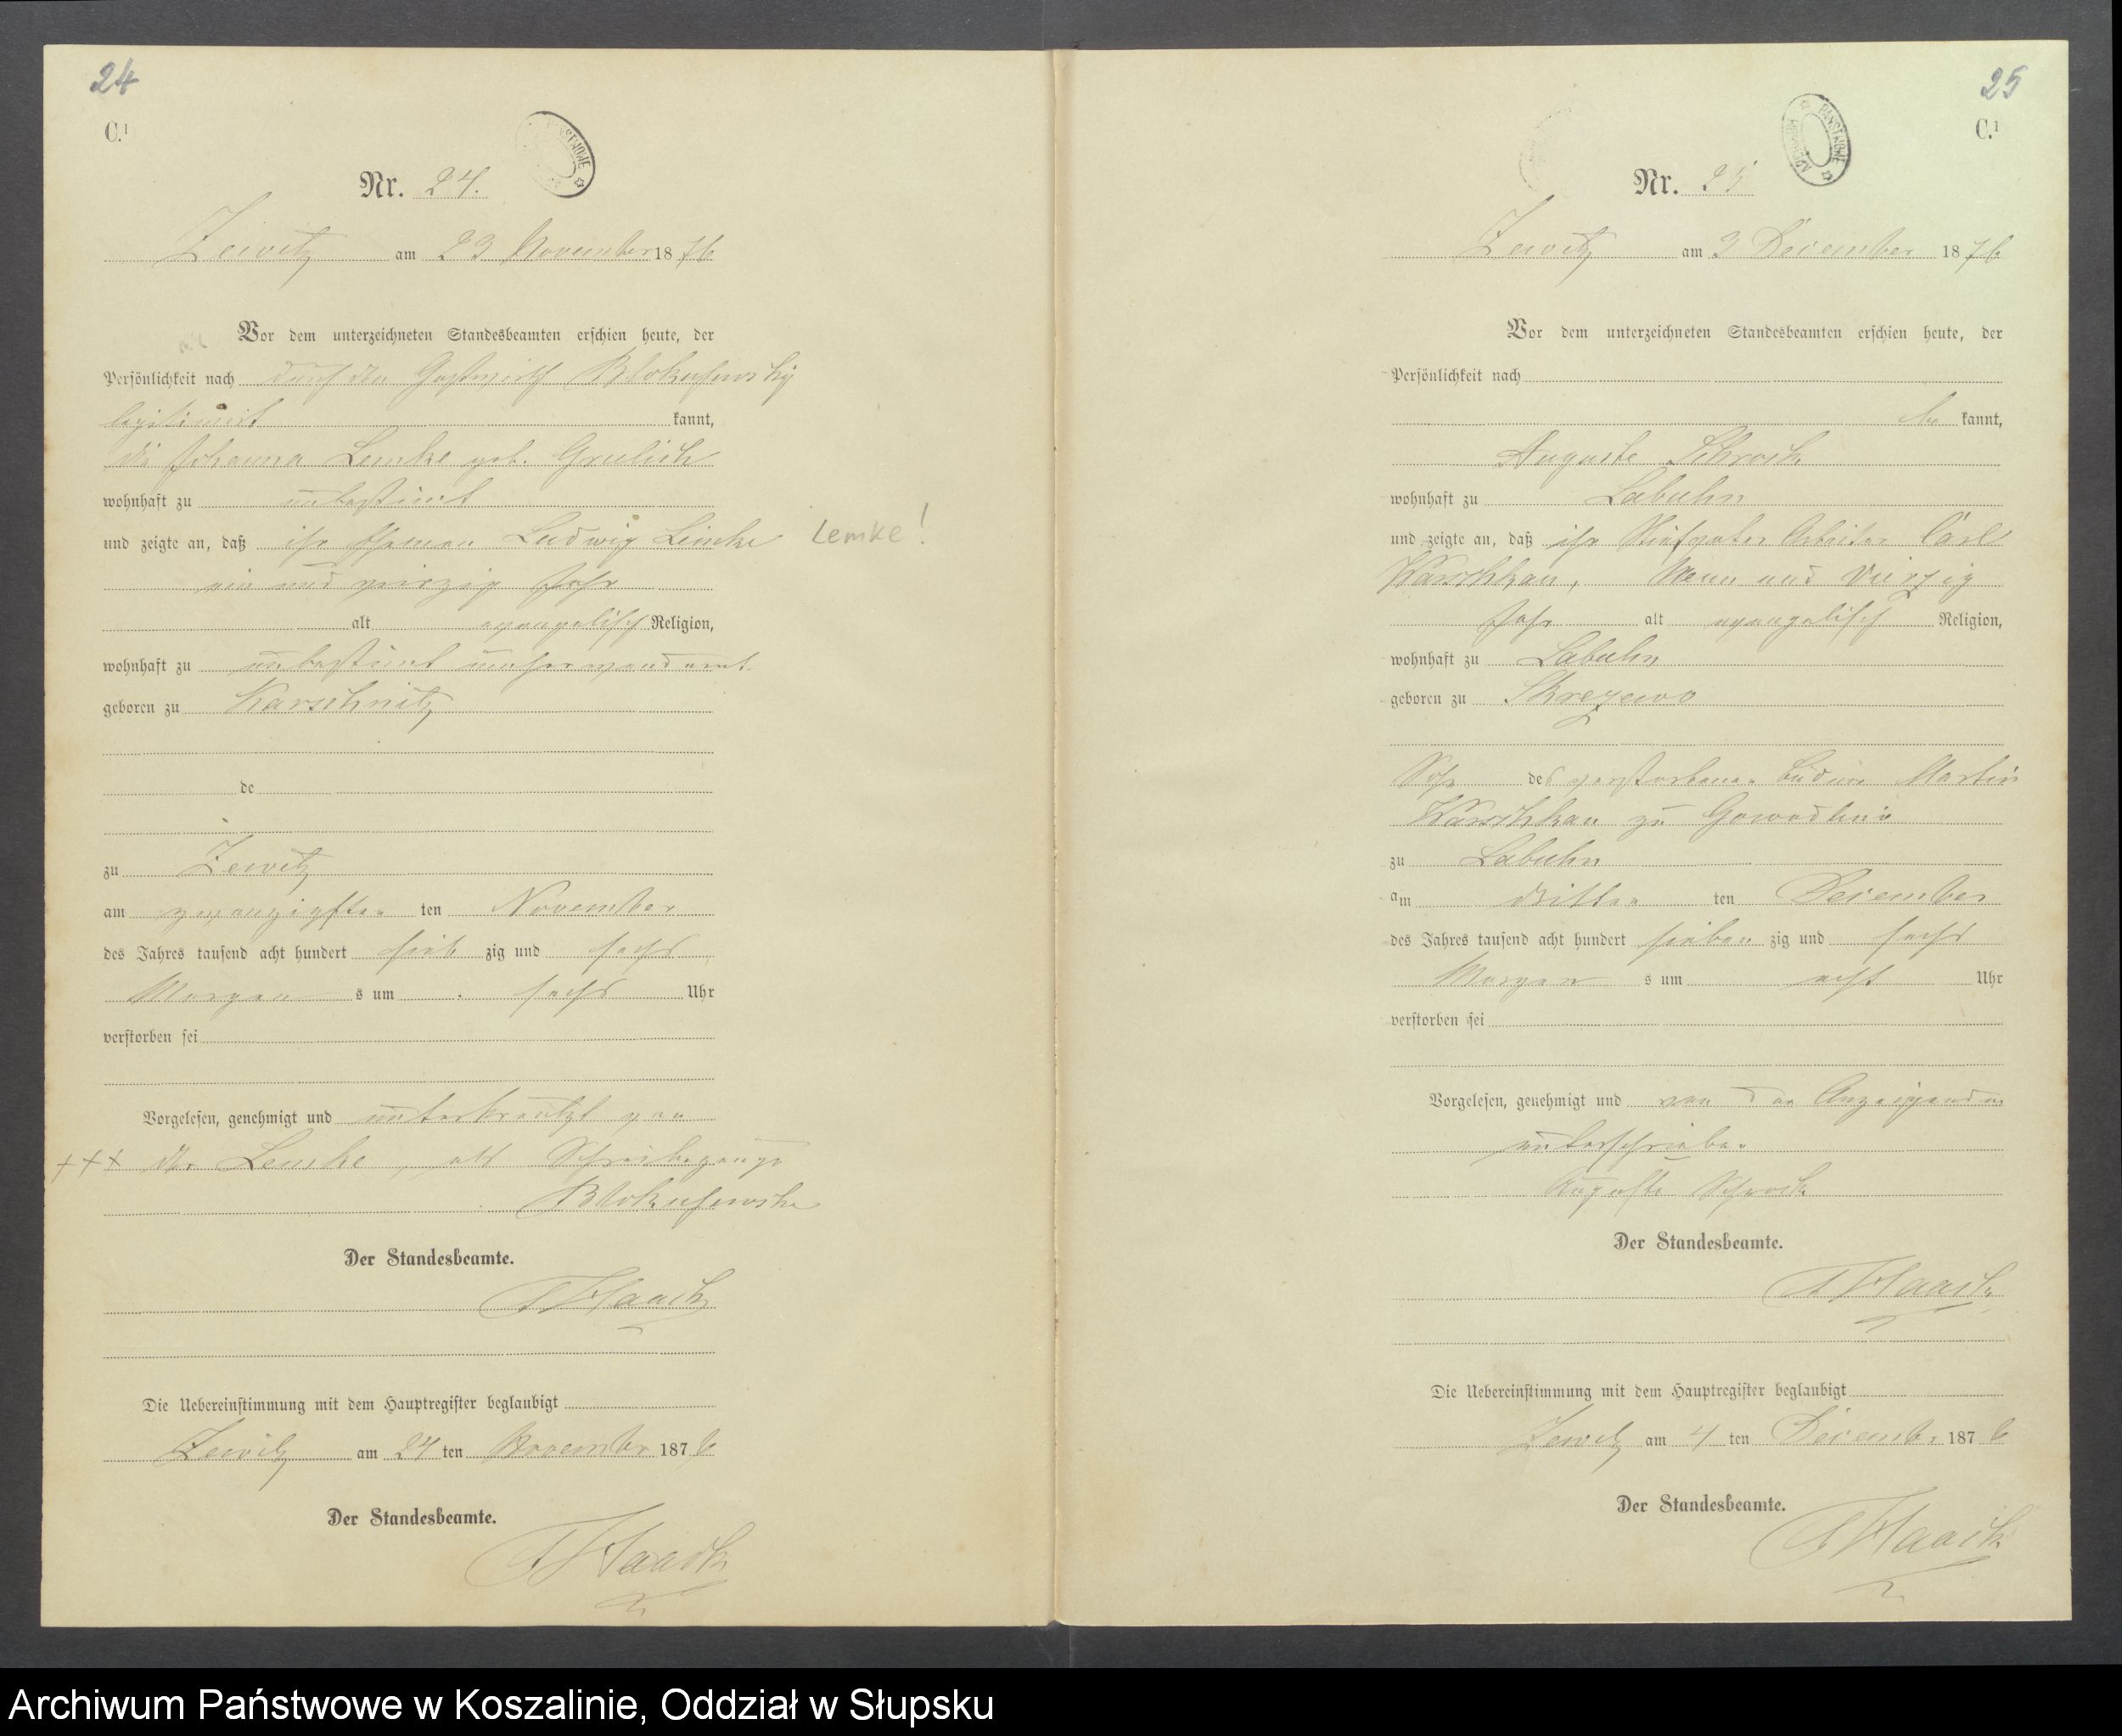 24
C.1
Nr. 24.
Zewitz am 23 November 1876
Vor dem unterzeichneten Standesbeamten erschien heute, der
Persönlichkeit nach durch den Gastwirth
legitimirt kannt,
die Johanna Lemke geb. Greulich
wohnhaft zu unbestimt
und zeigte an, daß ihr Eheman Ludwig Lemke Lemke!
ein und vierzig Jahr
alt evangelisch Religion,
wohnhaft zu unbestimt
geboren zu Karschnitz
de
zu Zewitz
am zwanzigsten ten November
des Jahres tausend acht hundert sieb zig und sechs
Morgen s um sechs Uhr
verstorben sei
Vorgelesen, genehmigt und unterkreutzt von
+++ der Lemke, als Schreibezeuge
Der Standesbeamte.
Haack
Die Uebereinstimmung mit dem Hauptregister beglaubigt
Zewitz am 24 ten November 1876
Der Standesbeamte.
Haack
25
C.1
ARCHIWUM PAŃSTWOWE
Nr. 25
Zewitz am 3 December 1876
Vor dem unterzeichneten Standesbeamten erschien heute, der
Persönlichkeit nach
be kannt,
Auguste Schrock
wohnhaft zu Labuhn
und zeigte an, daß ihr Stiefvater Arbeiter Carl
Warschkau, Neun und Vierzig
Jahr alt evangelisch Religion,
wohnhaft zu Labuhn
geboren zu Skrezewo
Sohn des verstorbenen Martin
Warschkau zu
zu Labuhn
am dritten ten December
des Jahres tausend acht hundert sieben zig und sechs
Morgen s um acht Uhr
verstorben sei
Vorgelesen, genehmigt und von der Anzeigenden
unterschrieben
Auguste Schrock
Der Standesbeamte.
Haack
Die Uebereinstimmung mit dem Hauptregister beglaubigt
Zewitz am 4 ten December 1876
Der Standesbeamte.
Haack
Archiwum Państwowe w Koszalinie, Oddział w Słupsku